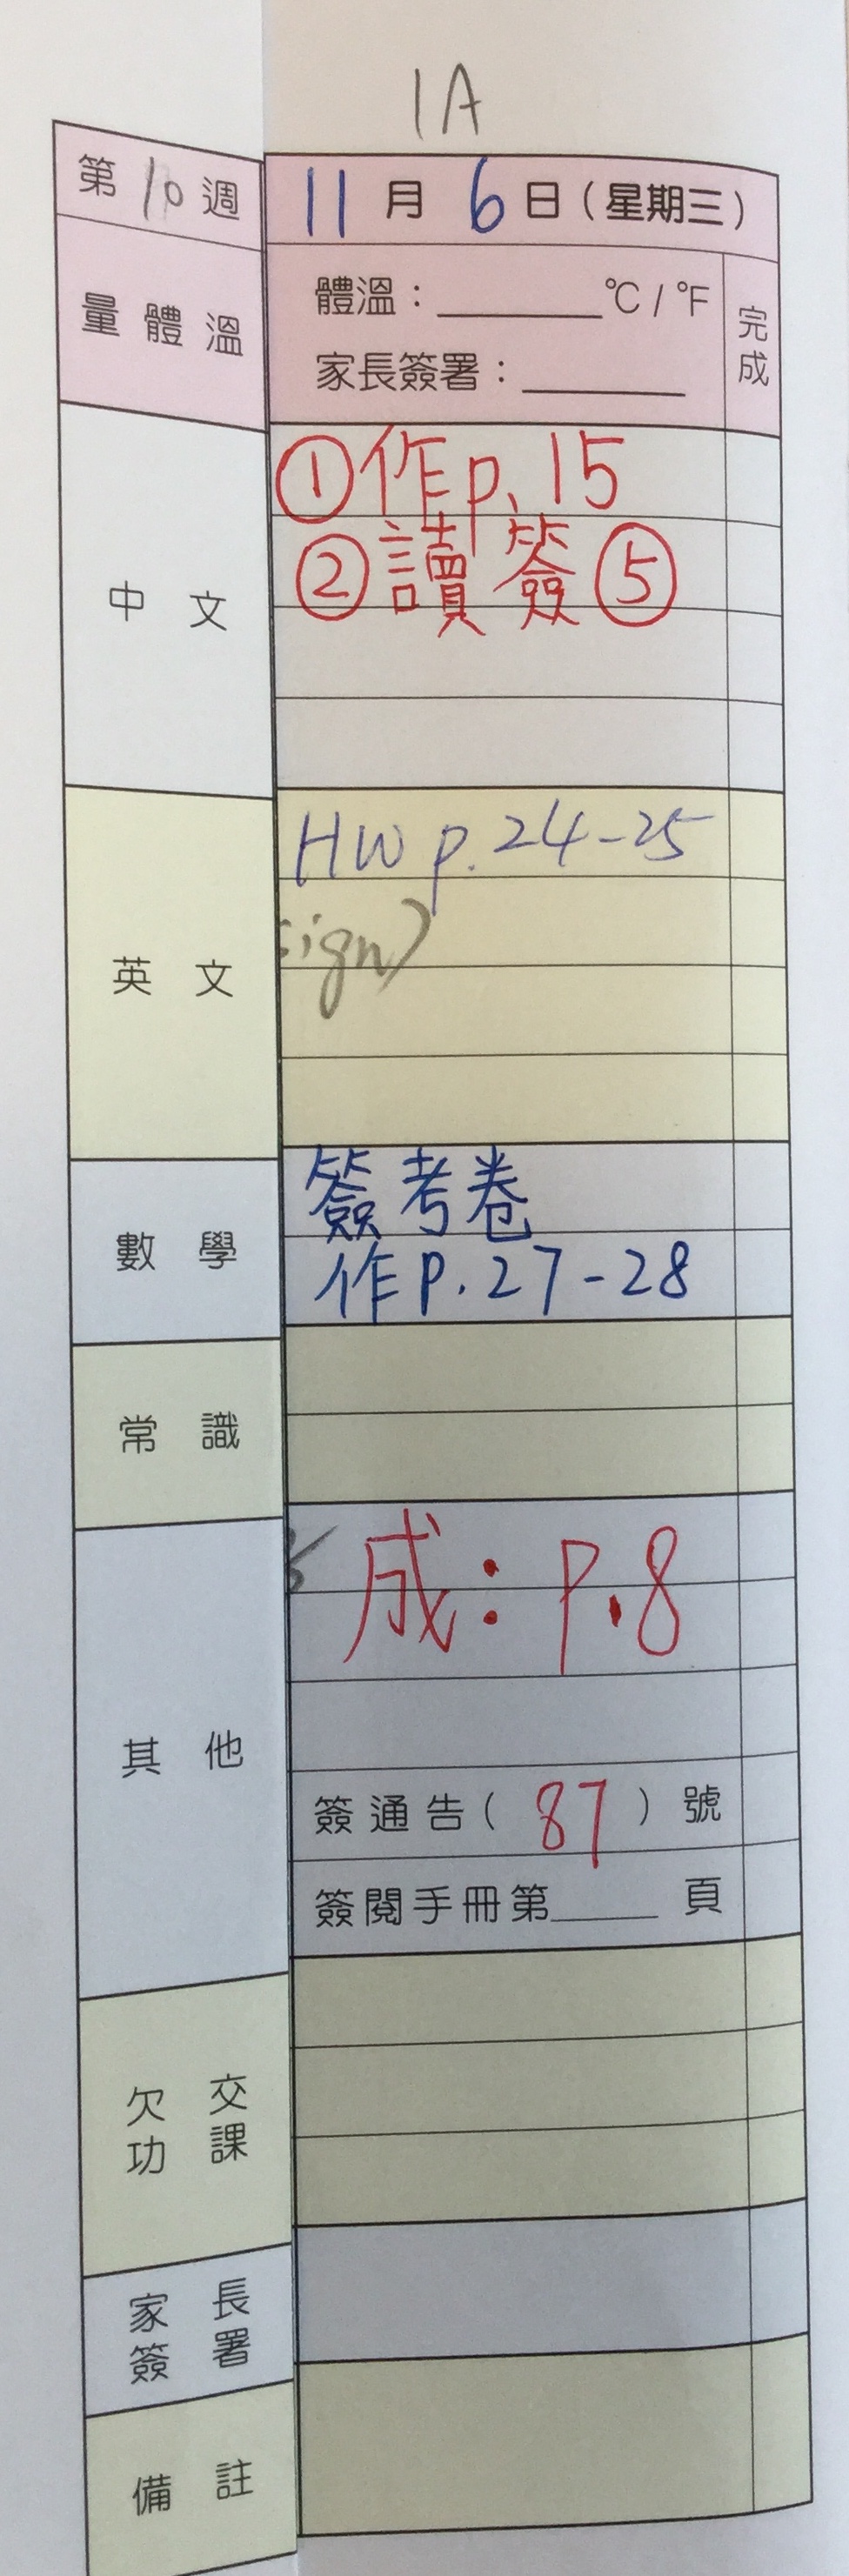 1A
第10週 11月6日(星期三)
量體溫 體溫:______°C / °F 完成
家長簽署:______
中文 ①作p.15
②讀簽⑤
英文 HW p.24-25
ign)
數學 簽考卷
作P.27-28
常識
其他 成:P.8
簽通告(87)號
簽閱手冊第____頁
欠交功課
家長簽署
備註